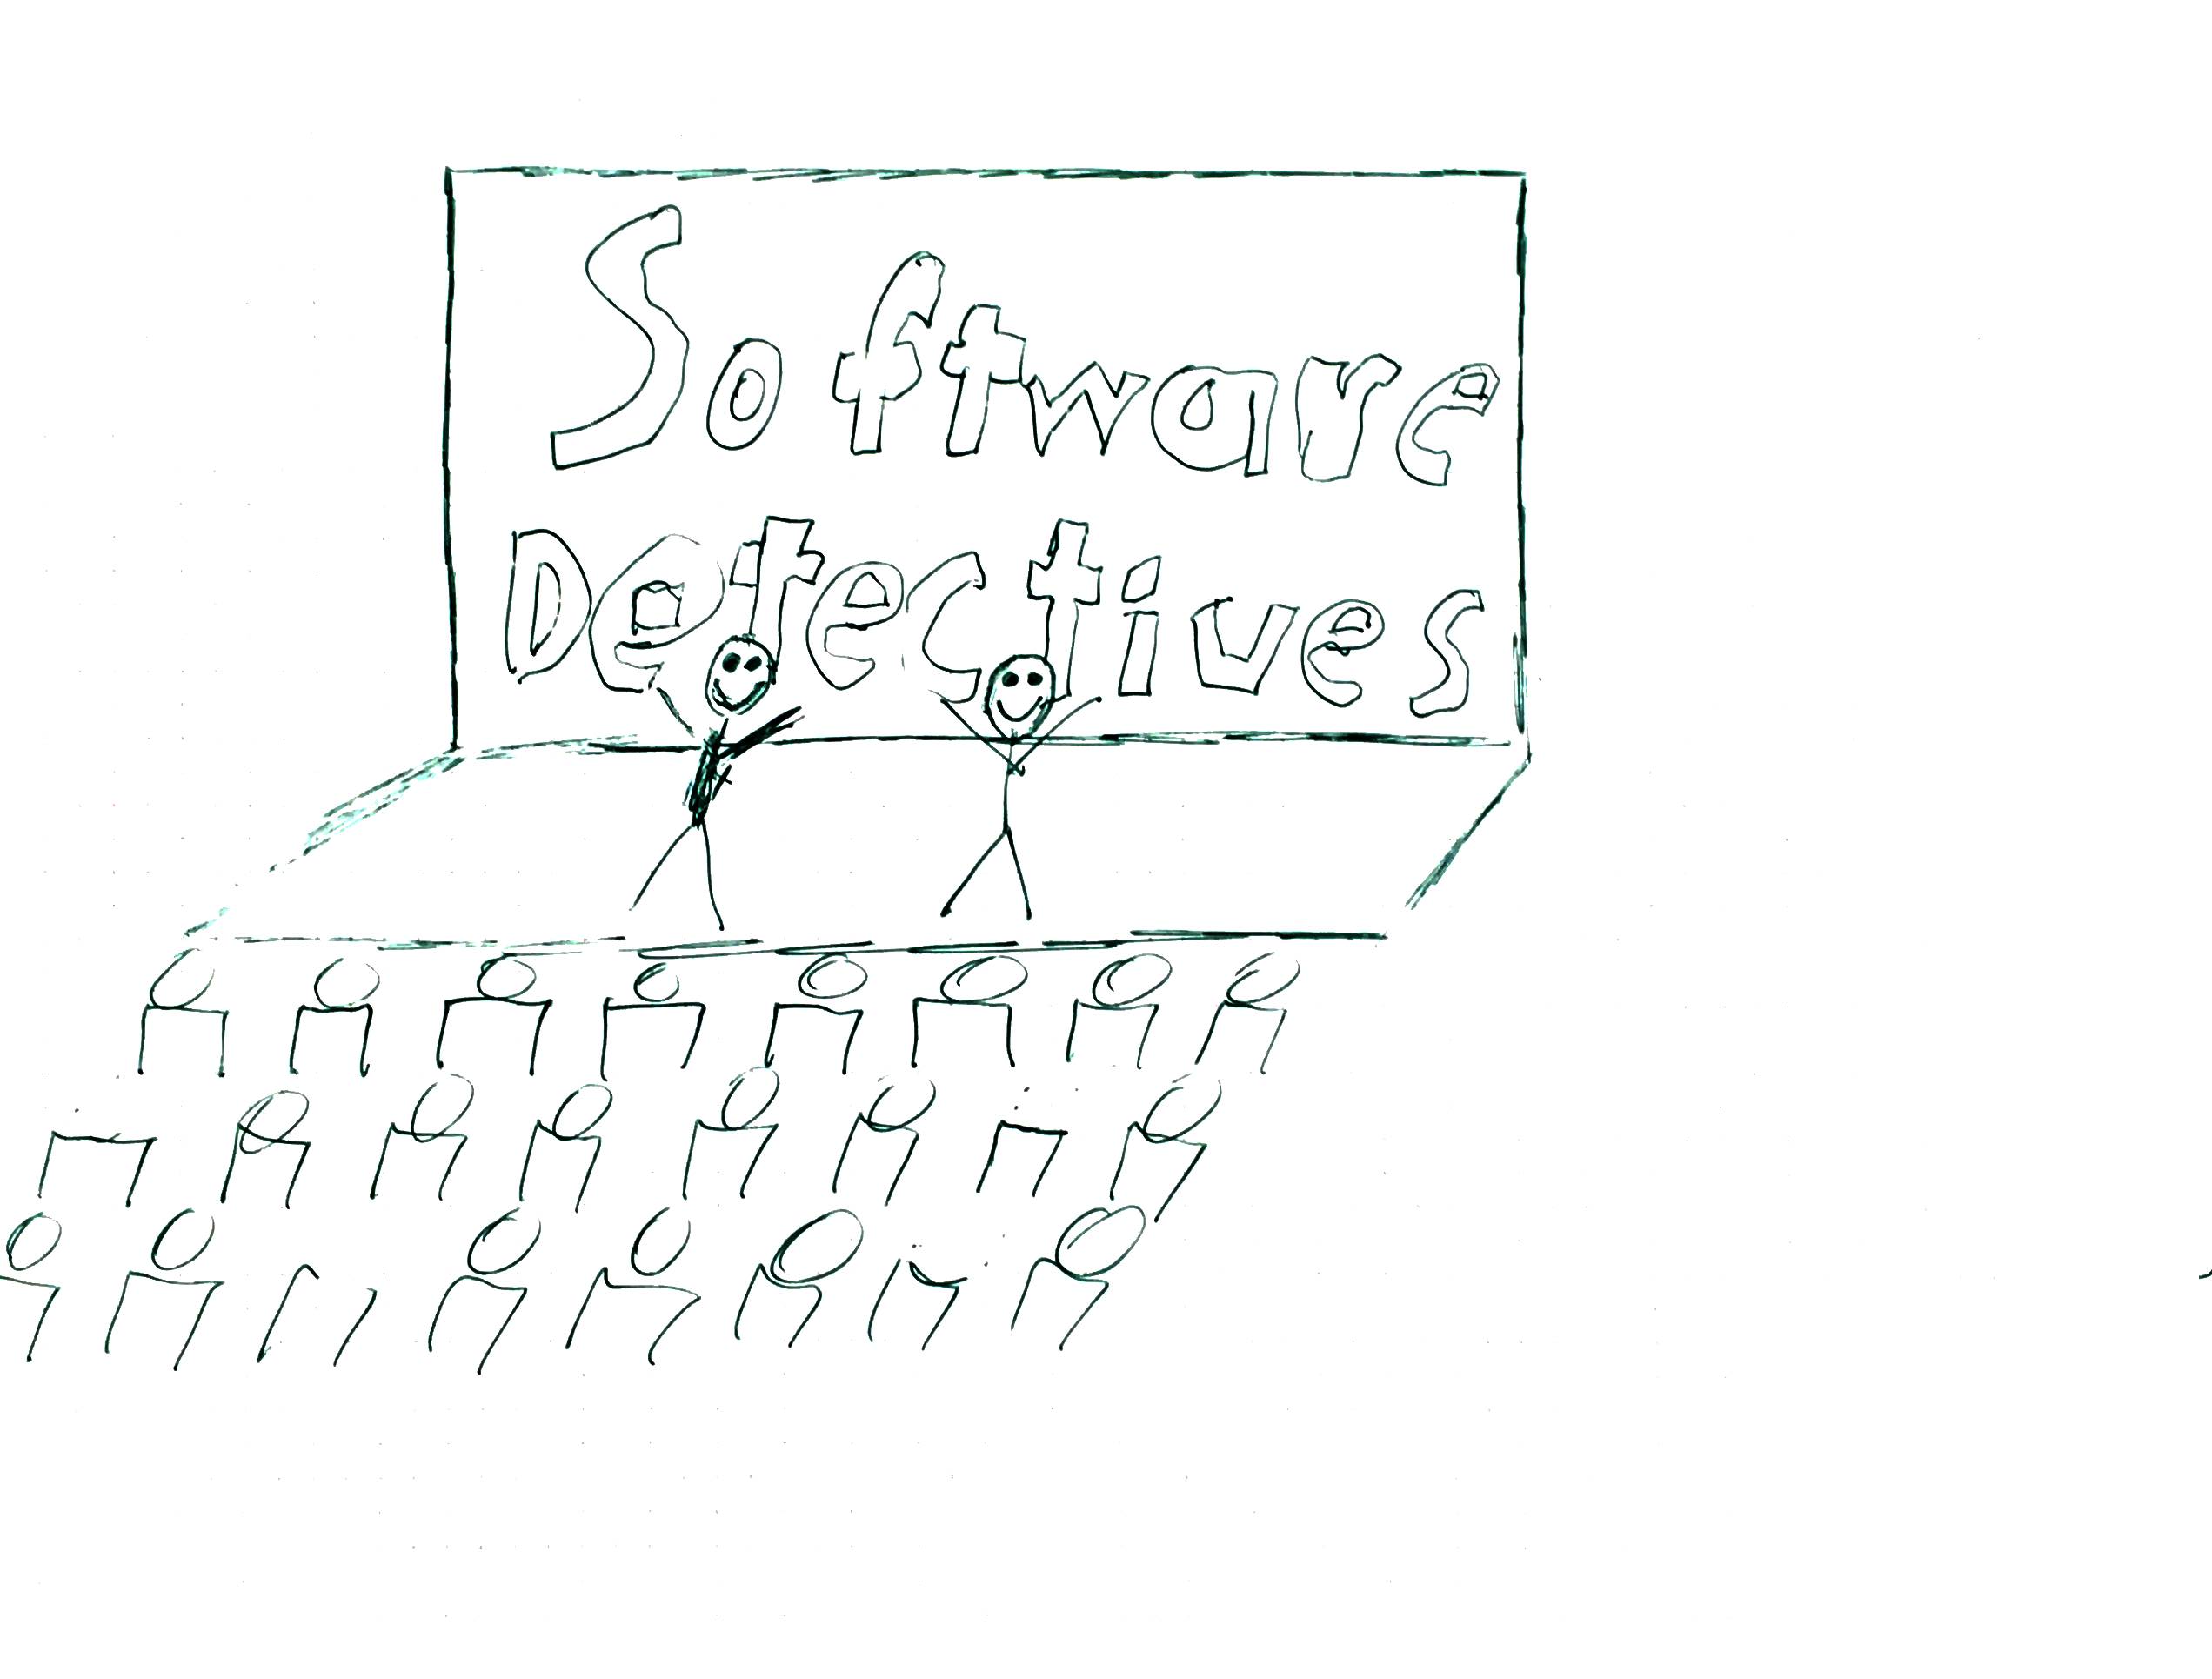 Software
Detectives